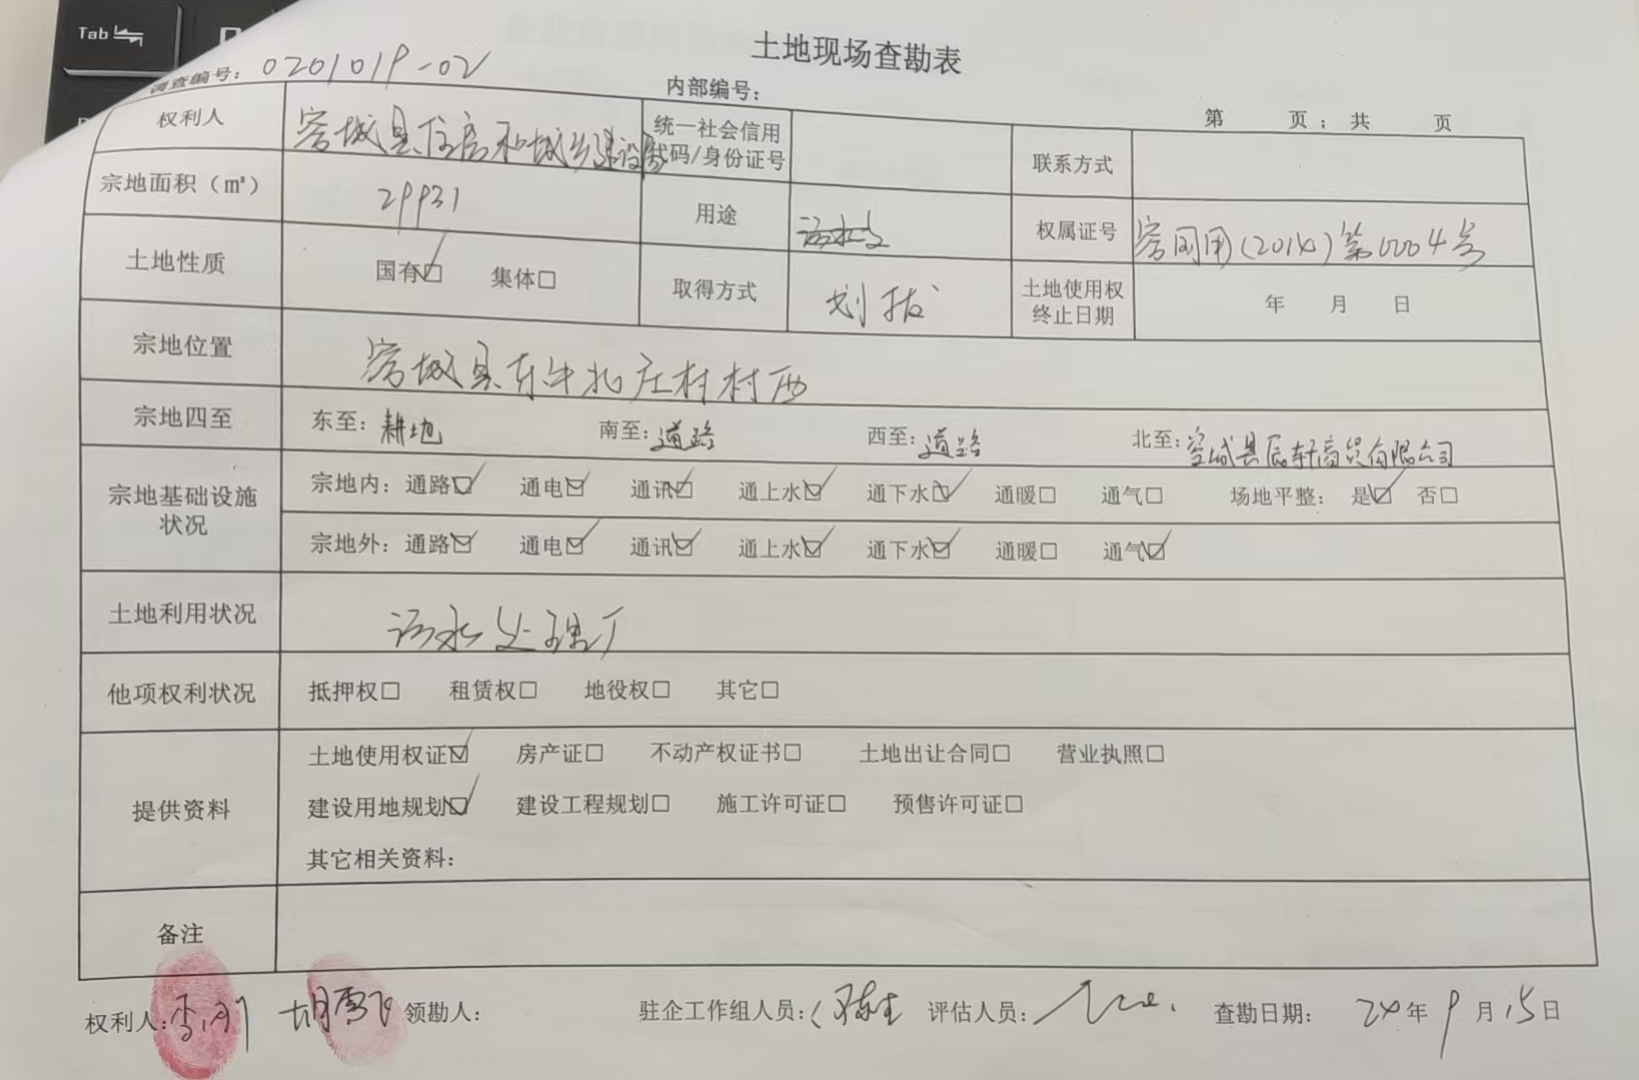 Tab
土地现场查勘表
调查编号：0201019-02
内部编号：
第 页；共 页
权利人 容城县住房和城乡建设局 统一社会信用代码/身份证号 联系方式
宗地面积（㎡） 29931 用途 污水处 权属证号 容国用(2014)第0004号
土地性质 国有☑ 集体□ 取得方式 划拨 土地使用权终止日期 年 月 日
宗地位置 容城县东牛北庄村村西
宗地四至 东至：耕地 南至：道路 西至：道路 北至：容城县辰轩商贸有限公司
宗地基础设施状况
宗地内：通路☑ 通电☑ 通讯☑ 通上水☑ 通下水☑ 通暖□ 通气□ 场地平整：是☑ 否□
宗地外：通路☑ 通电☑ 通讯☑ 通上水☑ 通下水☑ 通暖□ 通气☑
土地利用状况 污水处理厂
他项权利状况 抵押权□ 租赁权□ 地役权□ 其它□
提供资料
土地使用权证☑ 房产证□ 不动产权证书□ 土地出让合同□ 营业执照□
建设用地规划☑ 建设工程规划□ 施工许可证□ 预售许可证□
其它相关资料：
备注
权利人： 领勘人： 驻企工作组人员： 评估人员： 查勘日期： 24年9月15日